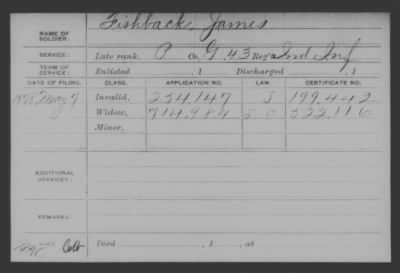 Fishback, James
NAME OF SOLDIER:
SERVICE: Late rank, P Co. G, 43 Reg't Ind Inf
TERM OF SERVICE: Enlisted , 1 Discharged , 1
DATE OF FILING. CLASS. APPLICATION NO. LAW. CERTIFICATE NO.
May 9 Invalid, 254.147 199.442
Widow, 714.984 522.116
Minor,
ADDITIONAL SERVICES:
REMARKS:
Died , 1 , at